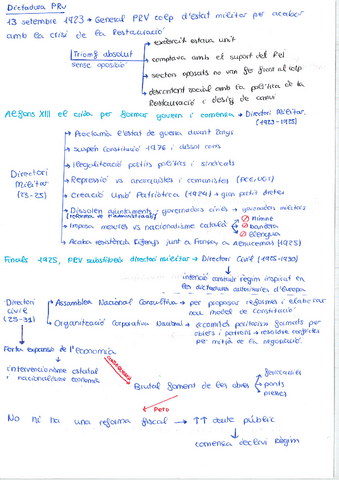 Dictadura PRV
13 setembre 1923 → General PRV colp d'estat militar per acabar
amb la crisi de la Restauració
Triomf absolut
sense oposició
exèrcit estava unit
comptava amb el suport del Rei
sectors oposats no van fer front al colp
descontent social amb la política de la
Restauració i desig de canvi
Alfons XIII el crida per formar govern i comença → Directori Militar
(1923-1925)
Directori
Militar
(23-25)
Proclama l'estat de guerra durant 2 anys
Suspén Constitució 1876 i dissol corts
Il·legalització partits polítics i sindicats
Repressió vs anarquistes i comunistes (PCE, CNT)
Creació Unió Patriòtica (1924) → gran partit dretes
Dissolen ajuntaments, governadors civils → governadors militars
Imposa mesures vs nacionalisme català
himne
bandera
llengua
Acaba resistència Rifenys junt a França, a Alhucemas (1925)
Finals 1925, PRV substitueix directori militar → Directori Civil (1925-1930)
intenció construir règim inspirat en
les dictadures autoritàries d'Europa
Directori
civil
(25-30)
Assemblea Nacional Consultiva → per proposar reformes i elaborar
nou model de Constitució
Organització Corporativa Nacional → acomités paritaris formats per
obrers i patrons → resoldre conflictes
per mitjà de la negociació.
Forta expansió de l'economia
intervencionisme estatal
i nacionalisme econòmic
Brutal foment de les obres
ferrocarrils
ponts
preses
Però
No hi ha una reforma fiscal → ↑↑ deute públic
comença declivi règim